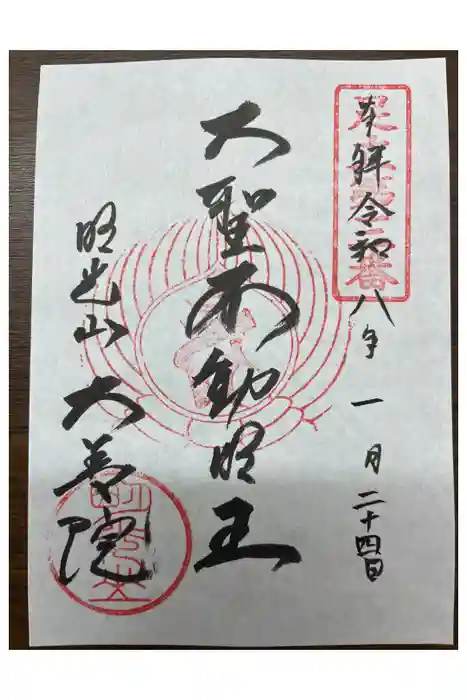 奉拝 令和八年 一月 二十四日
大聖不動明王
明光山 大善院